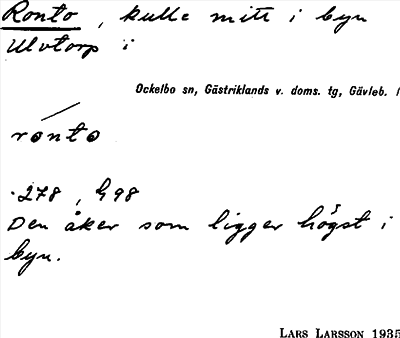 Ronto, kulle mitt i byn
Ulvtorp i
Ockelbo sn, Gästriklands v. doms. tg, Gävleb. l
ronto
278, G98
Den åker som ligger högst i
byn.
LARS LARSSON 1935